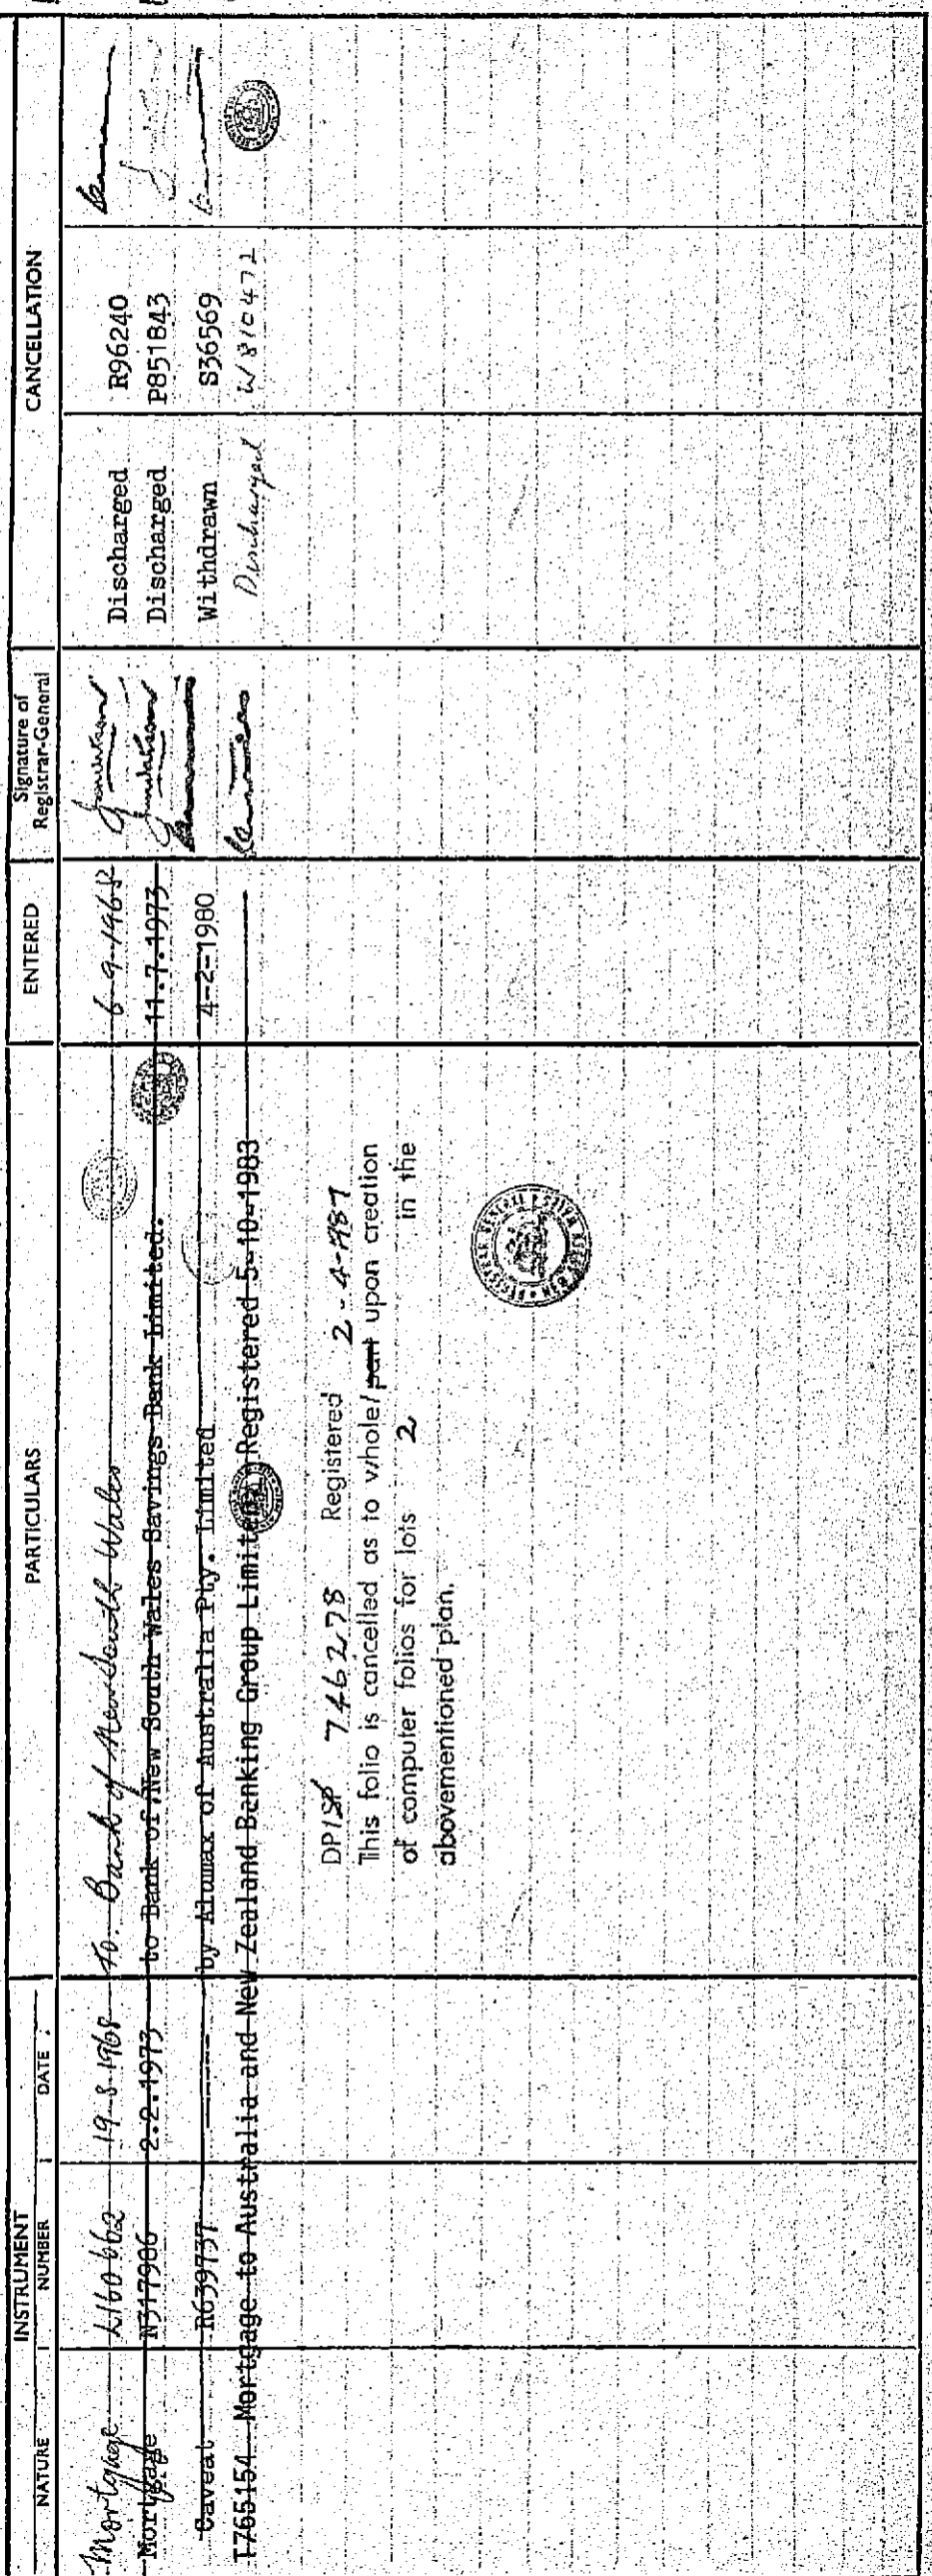 INSTRUMENT
NATURE NUMBER DATE
PARTICULARS
ENTERED
Signature of
Registrar-General
CANCELLATION
Mortgage L160662 19-8-1968 to Bank of New South Wales 6-9-1968
Mortgage N317906 2.2.1973 to Bank of New South Wales Savings Bank Limited. 11.7.1973 Discharged R96240
Discharged P851843
Caveat R639737 ----- by Alumax of Australia Pty. Limited 4-2-1980 Withdrawn S36569
T765154 Mortgage to Australia and New Zealand Banking Group Limited Registered 5-10-1983 Discharged W810472
DP/SP 746278 Registered 2-4-1987
This folio is cancelled as to whole/part upon creation
of computer folios for lots 2 in the
abovementioned plan.